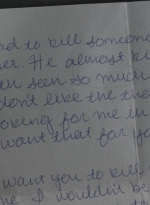 ad to kill someone
er. He almost ki
en seen so much
don't like the the
oking for me in
want that for yo
want you to kill
me I wouldn't be
to